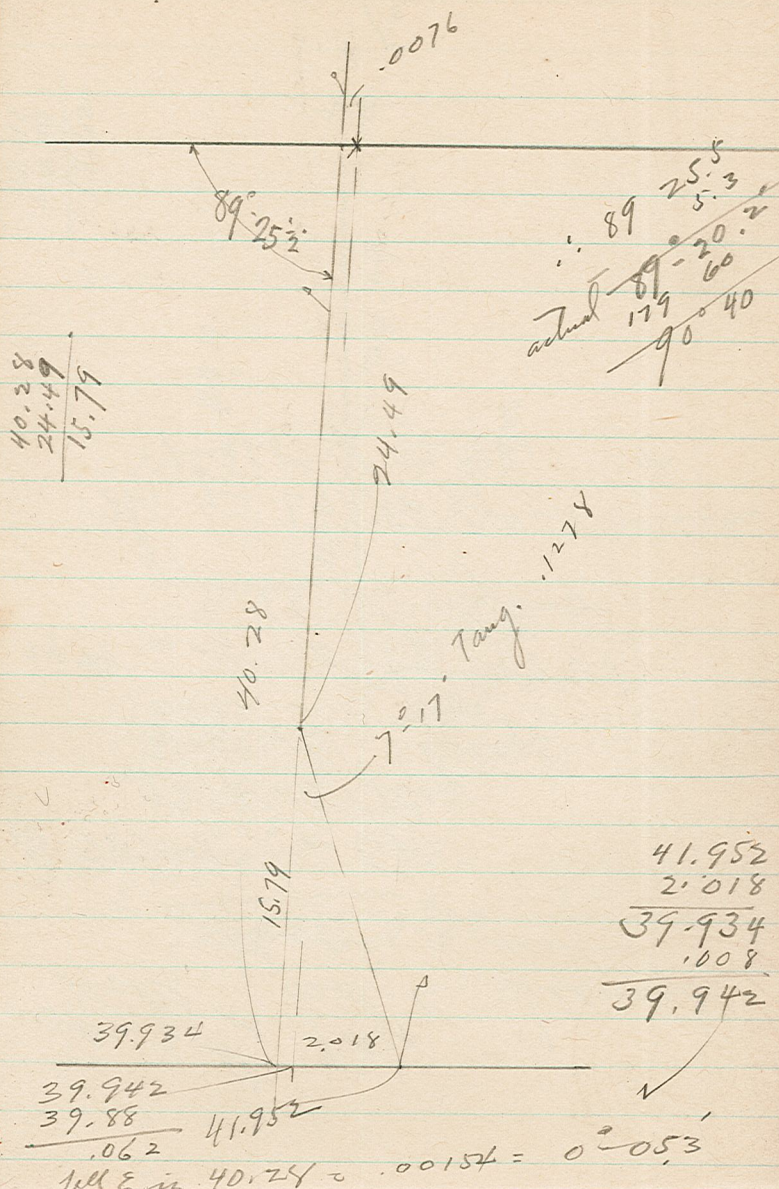 .0076
89°-25½'
∴ 89 25.5
5.3
actual 89°-20.2
179 60
90° 40
40.28
24.49
15.79
24.49
40.28
7°-17' Tang. .1278
15.79
41.952
2.018
39.934
.008
39.942
39.934
2.018
39.942
39.88
.062
41.952
in 40.28 = .00154 = 0°-05.3'